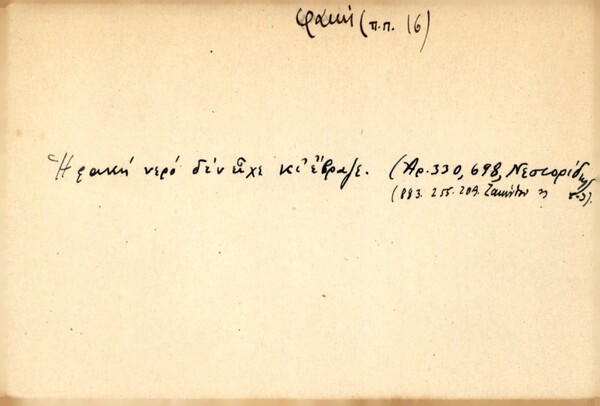 φακή (π.π. 16)
Ἡ φακή νερό δέν εἶχε κι' ἔβραζε. (Ἀρ. 330, 698, Νεστορίδης
(883. 255. 209. Ζακύνθου